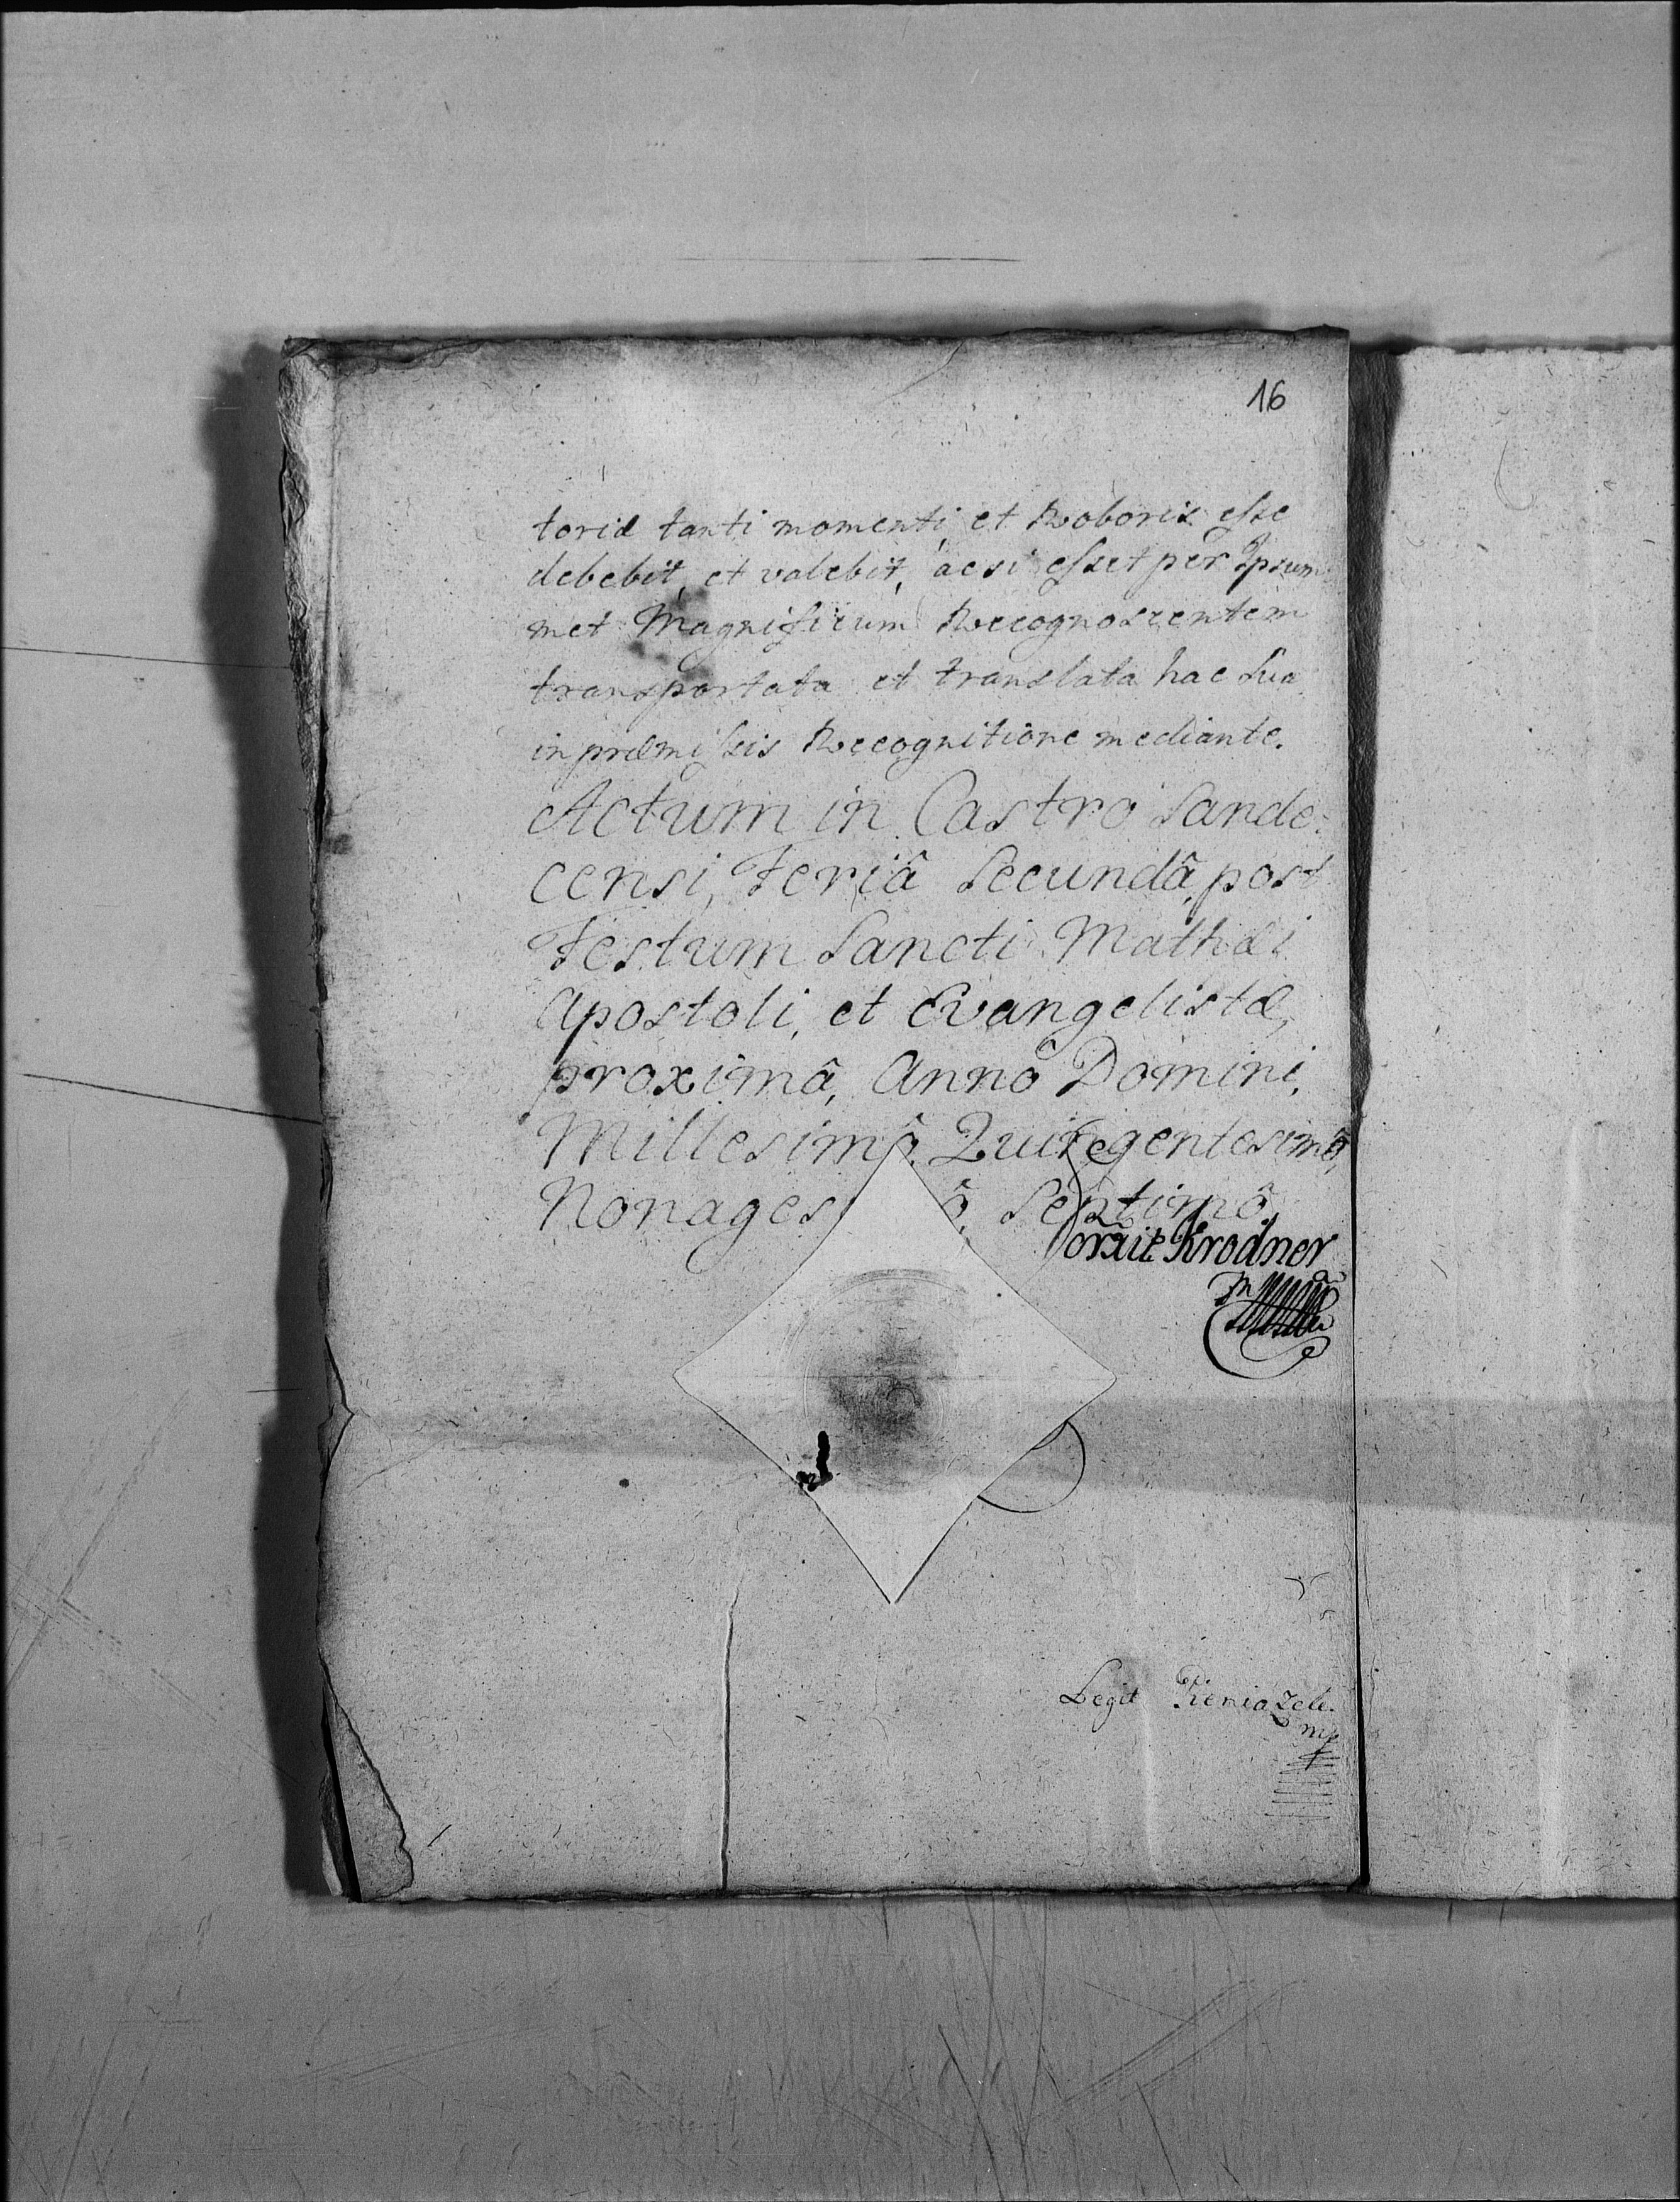 16
toriæ tanti momenti et Roboris esse
debebit, et valebit, acsi esset per Ipsum
met Magnificum Recognoscentem
transportata et translata hac Sua
in præmissis Recognitione mediante.
Actum in Castro Sande-
censi, Feriâ Secundâ, post
Festum Sancti Mathæi
Apostoli, et Evangelistæ,
proximâ, Annô Domini,
Millesimô, Quingentesimô,
Nonages ô, Septimô,
Krodner
Legit
mp